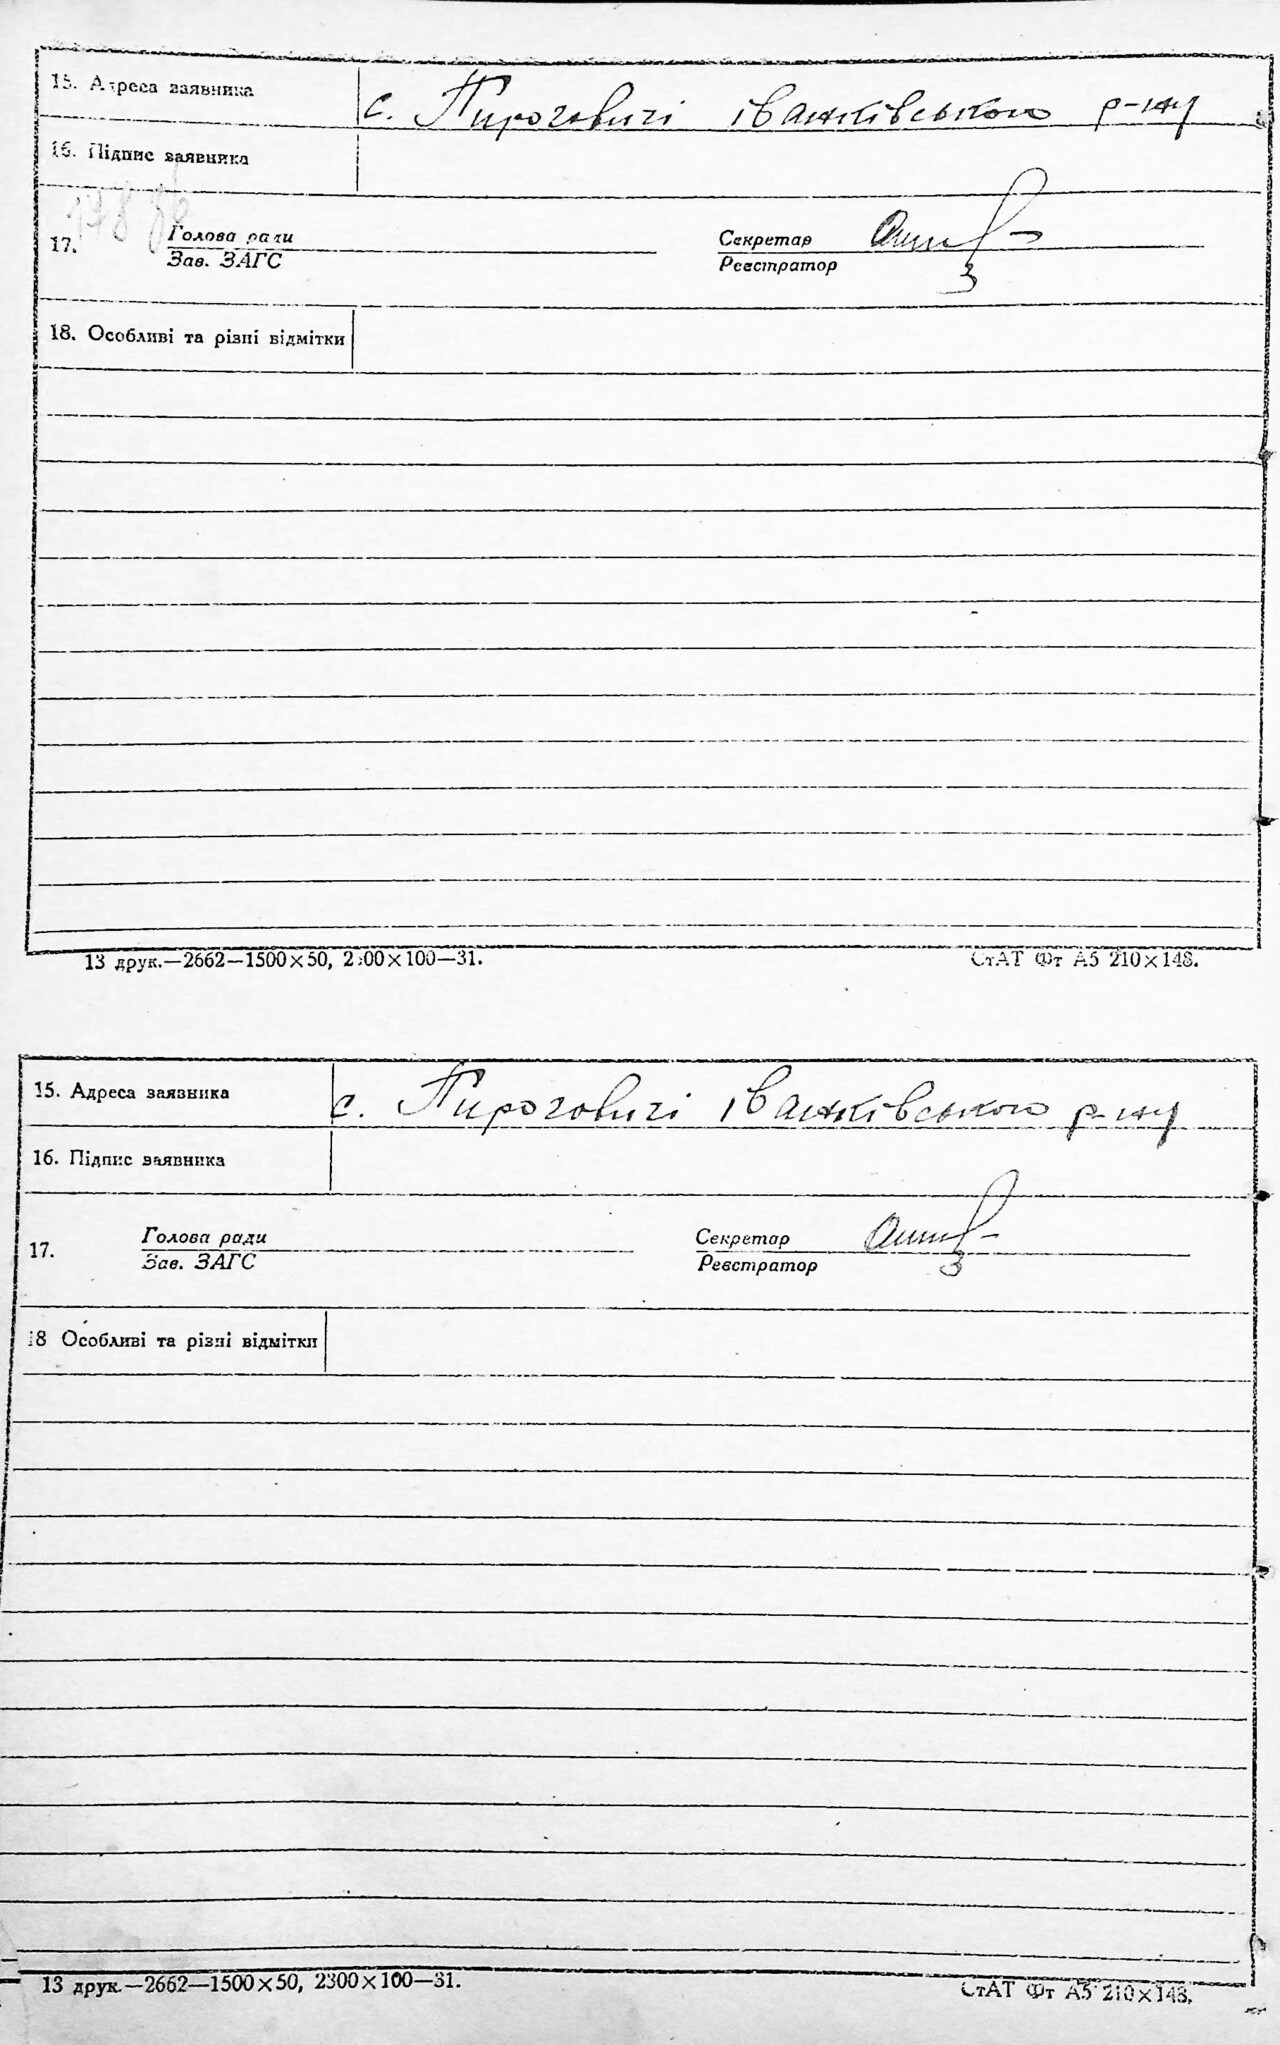 15. Адреса заявника с. Пироговичі Іванківського р-ну
16. Підпис заявника
17. Голова ради Секретар
Зав. ЗАГС Реєстратор
18. Особливі та різні відмітки
13 друк.—2662—1500×50, 2300×100—31. СтАТ Фт А5 210×148.
15. Адреса заявника с. Пироговичі Іванківського р-ну
16. Підпис заявника
17. Голова ради Секретар
Зав. ЗАГС Реєстратор
18 Особливі та різні відмітки
13 друк.—2662—1500×50, 2300×100—31. СтАТ Фт А5 210×148.